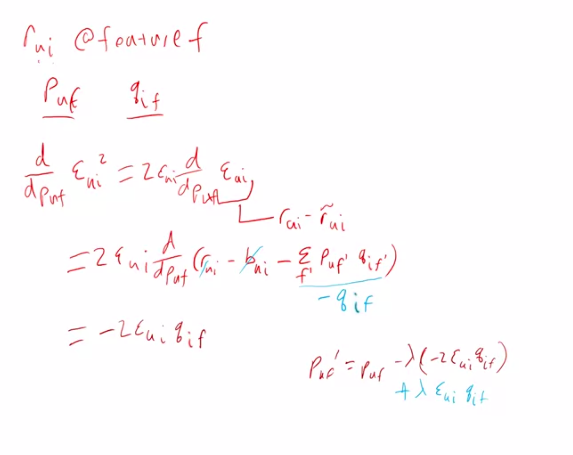 r_ui @feature f
P_uf q_if
d/dp_uf ε_ui² = 2ε_ui d/dp_uf ε_ui
r_ui - r̃_ui
= 2ε_ui d/dp_uf (r_ui - b_ui - Σ_f' P_uf' q_if')
-q_if
= -2ε_ui q_if
P_uf' = P_uf - λ(-2ε_ui q_if)
+ λ ε_ui q_if